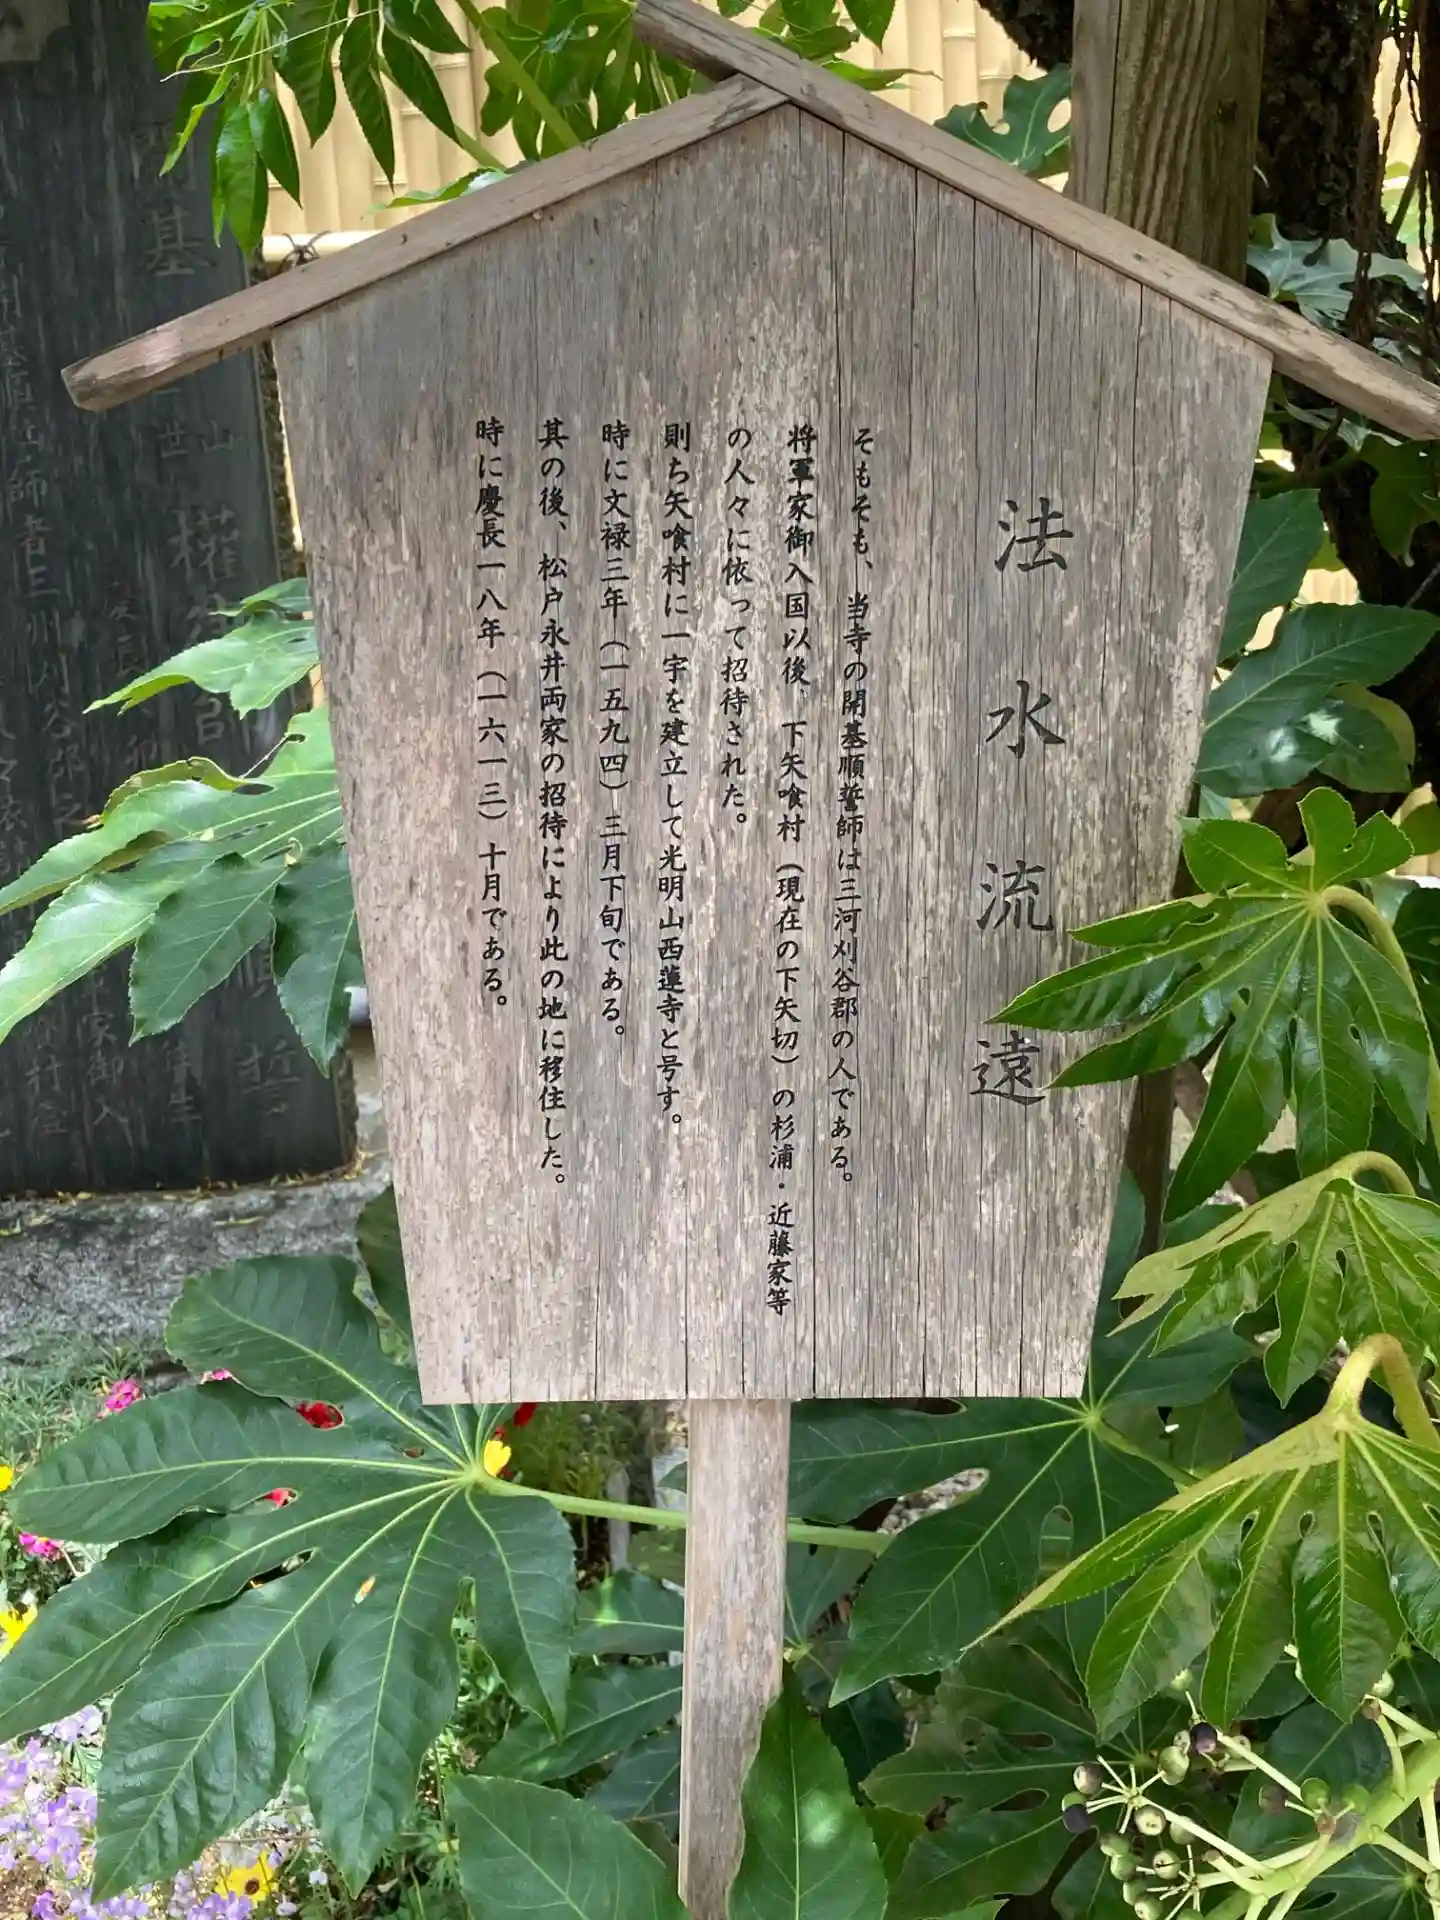 法水流遠
そもそも、当寺の開基順誓師は三河刈谷郡の人である。
将軍家御入国以後、下矢喰村（現在の下矢切）の杉浦・近藤家等
の人々に依って招待された。
則ち矢喰村に一宇を建立して光明山西蓮寺と号す。
時に文禄三年（一五九四）三月下旬である。
其の後、松戸永井両家の招待により此の地に移住した。
時に慶長一八年（一六一三）十月である。